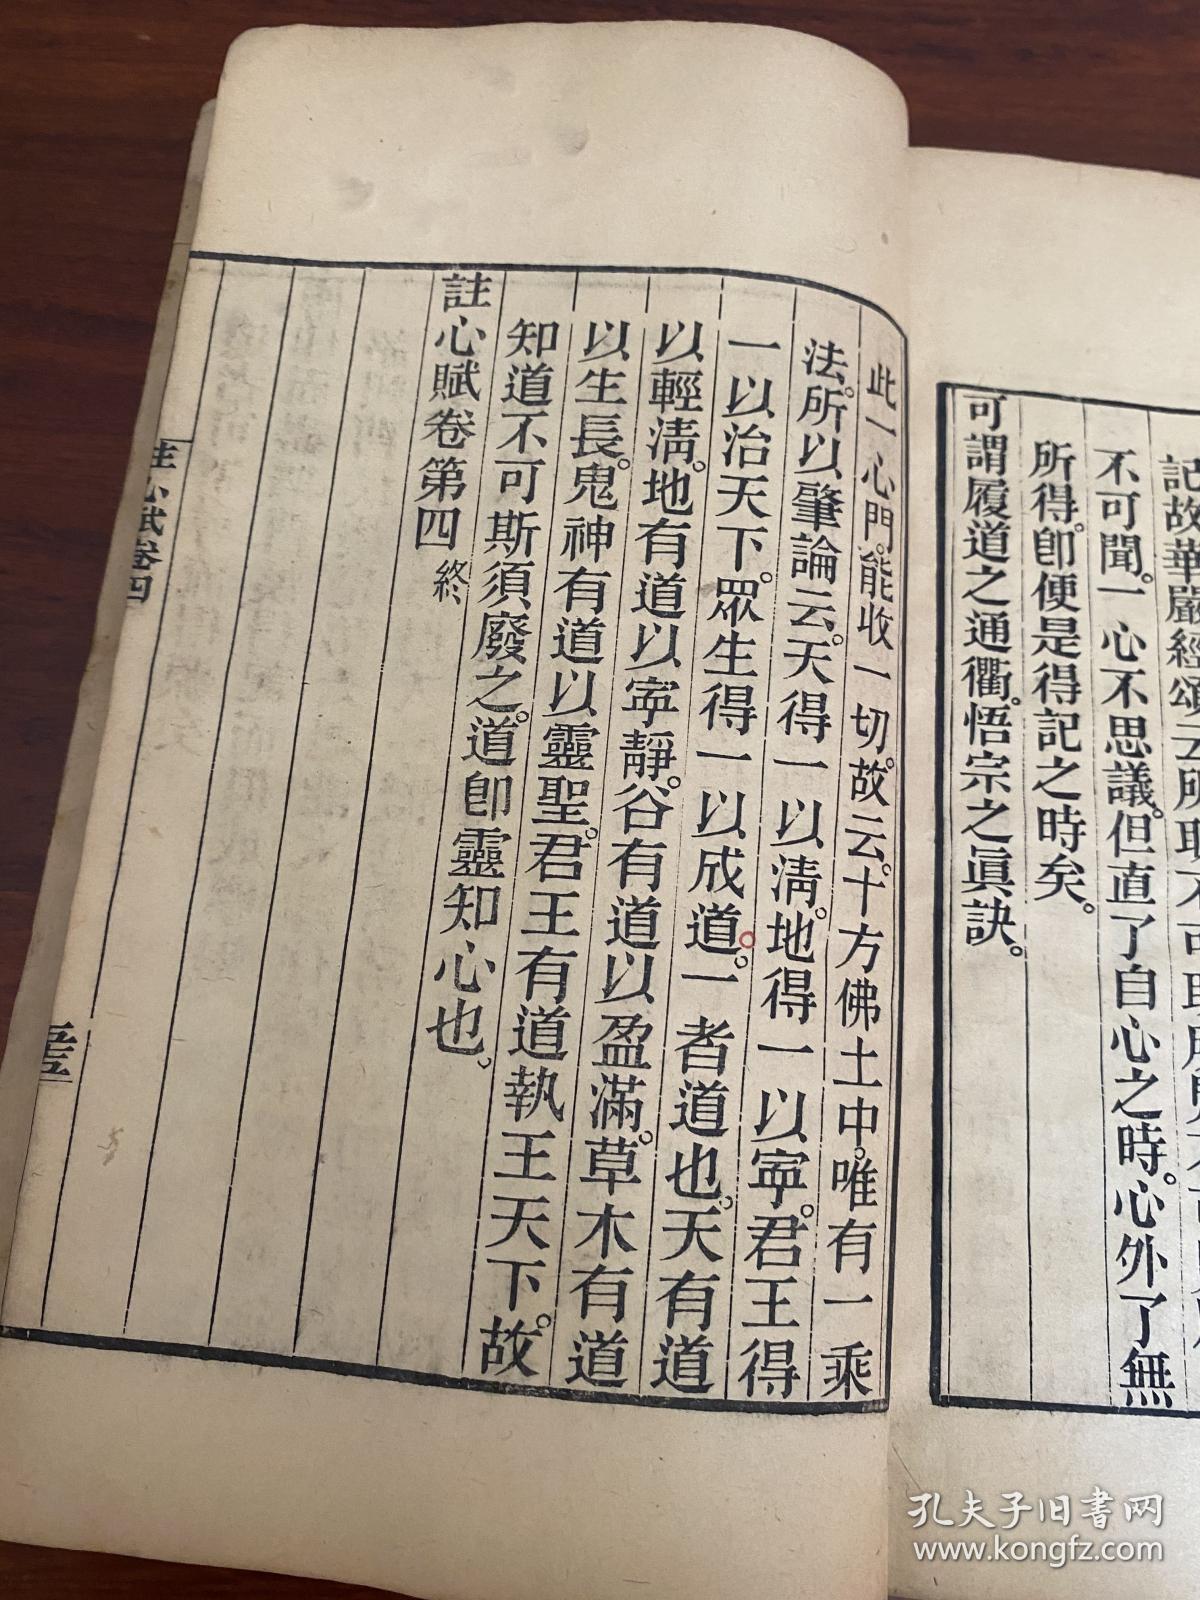 記故華嚴經頌云所取不可取
不可聞。一心不思議。但直了自心之時。心外了無
所得。卽便是得記之時矣。
可謂履道之通衢。悟宗之眞訣。
此一心門。能收一切。故云。十方佛土中。唯有一乘
法。所以肇論云。天得一以淸。地得一以寧。君王得
一以治天下。眾生得一以成道。一者道也。天有道
以輕淸。地有道以寧靜。谷有道以盈滿。草木有道
以生長。鬼神有道以靈聖。君王有道執王天下。故
知道不可斯須廢之。道卽靈知心也。
註心賦卷第四 終
註心賦卷四
孔夫子旧书网
www.kongfz.com